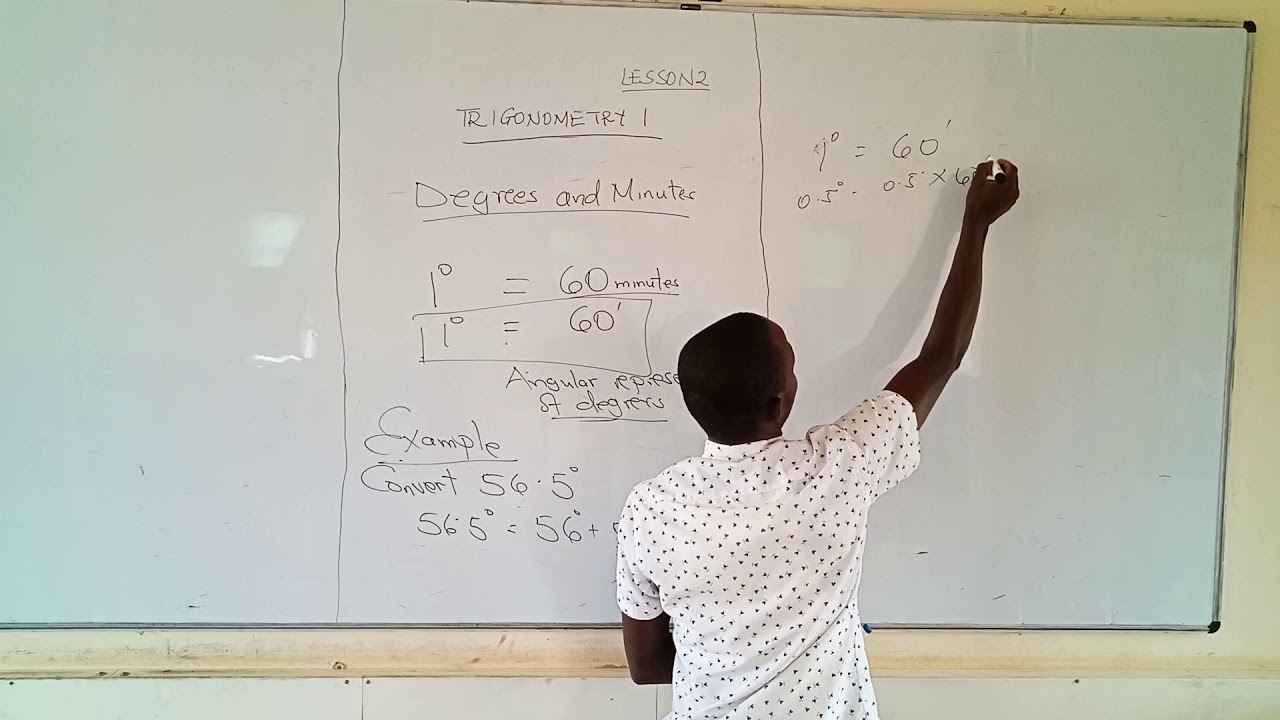 LESSON 2
TRIGONOMETRY 1
Degrees and Minutes
1° = 60 minutes
1° = 60'
Angular
of degrees
Example
Convert 56.5°
56.5° = 56° +
1° = 60'
0.5° = 0.5 × 60